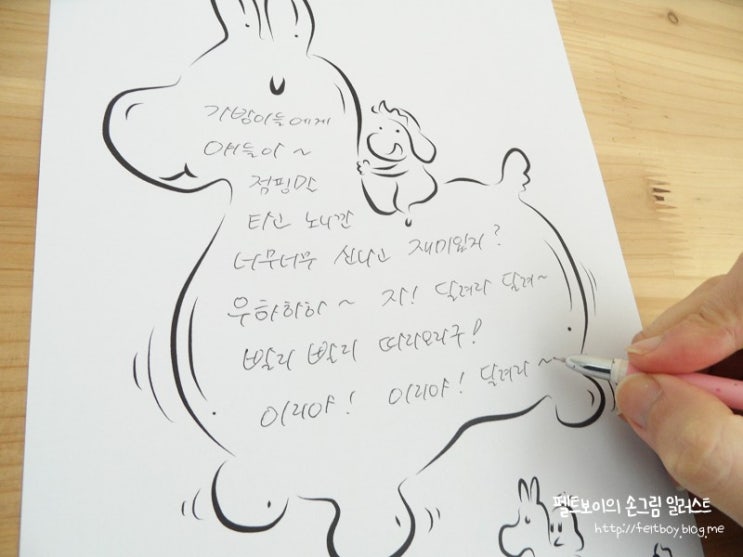 가방이들에게
얘들아 ~
점핑만
타고 노니깐
너무너무 신나고 재미있지?
우하하하 ~ 자! 달려라 달려~
빨리 빨리 따라오라구!
이리야! 이리야! 달려라 ~
펠트보이의 손그림 일러스트
http://feltboy.blog.me